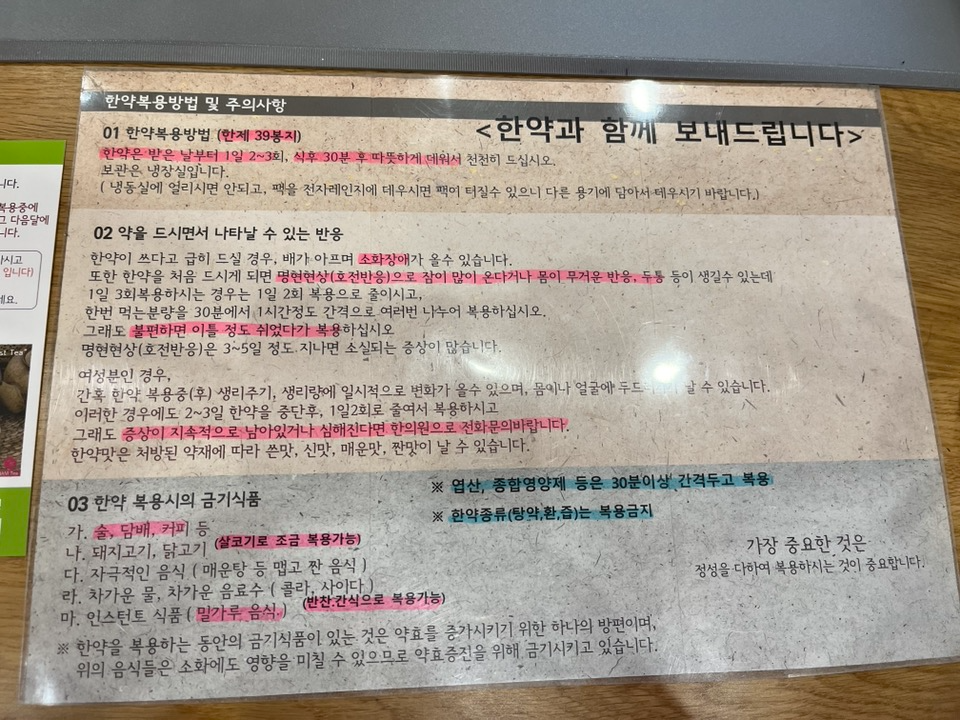 한약복용방법 및 주의사항
<한약과 함께 보내드립니다>
01 한약복용방법 (한제 39봉지)
한약은 받은 날부터 1일 2~3회, 식후 30분 후 따뜻하게 데워서 천천히 드십시오.
보관은 냉장실입니다.
( 냉동실에 얼리시면 안되고, 팩을 전자레인지에 데우시면 팩이 터질수 있으니 다른 용기에 담아서 데우시기 바랍니다.)
02 약을 드시면서 나타날 수 있는 반응
한약이 쓰다고 급히 드실 경우, 배가 아프며 소화장애가 올수 있습니다.
또한 한약을 처음 드시게 되면 명현현상(호전반응)으로 잠이 많이 온다거나 몸이 무거운 반응, 두통 등이 생길수 있는데
1일 3회복용하시는 경우는 1일 2회 복용으로 줄이시고,
한번 먹는분량을 30분에서 1시간정도 간격으로 여러번 나누어 복용하십시오.
그래도 불편하면 이틀 정도 쉬었다가 복용하십시오
명현현상(호전반응)은 3~5일 정도 지나면 소실되는 증상이 많습니다.
여성분인 경우,
간혹 한약 복용중(후) 생리주기, 생리량에 일시적으로 변화가 올수 있으며, 몸이나 얼굴에 날 수 있습니다.
이러한 경우에도 2~3일 한약을 중단후, 1일2회로 줄여서 복용하시고
그래도 증상이 지속적으로 남아있거나 심해진다면 한의원으로 전화문의바랍니다.
한약맛은 처방된 약재에 따라 쓴맛, 신맛, 매운맛, 짠맛이 날 수 있습니다.
※ 엽산, 종합영양제 등은 30분이상 간격두고 복용
※ 한약종류(탕약,환,즙)는 복용금지
03 한약 복용시의 금기식품
가. 술, 담배, 커피 등
나. 돼지고기, 닭고기 (살코기로 조금 복용가능)
다. 자극적인 음식 ( 매운탕 등 맵고 짠 음식 )
라. 차가운 물, 차가운 음료수 ( 콜라, 사이다 )
마. 인스턴트 식품 ( 밀가루 음식.) (반찬.간식으로 복용가능)
※ 한약을 복용하는 동안의 금기식품이 있는 것은 약효를 증가시키기 위한 하나의 방편이며,
위의 음식들은 소화에도 영향을 미칠 수 있으므로 약효증진을 위해 금기시키고 있습니다.
가장 중요한 것은
정성을 다하여 복용하시는 것이 중요합니다.
니다.
복용중에
그 다음달에
니다.
하시고
입니다)
세요.